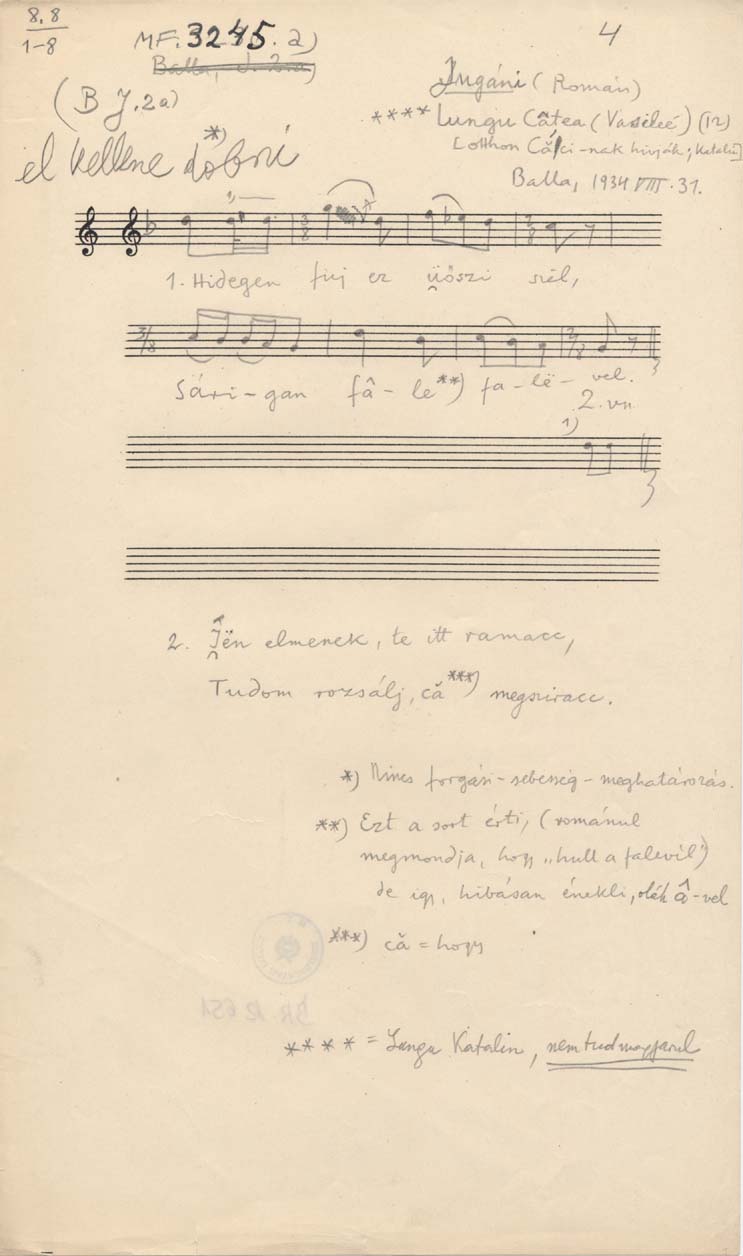 8.8
1-8
MF. 3245. a)
4
(B J. 2a)
el kellene dobni *)
Lugáni (Román)
**** Lungu Câtea (Vasileé) (12)
[otthon Căci-nak hívják; Katalin]
Balla, 1934 VIII. 31.
1)
1. Hidegen fúj ez üöszi szél,
Sári-gan fâ-le **) fa-lë-vel.
2. vn
1)
2. Jën elmenek, te itt ramacc,
Tudom rozsálj, că ***) megsziracc.
*) Nincs forgási-sebesség-meghatározás.
**) Ezt a sort érti, (románul
megmondja, hogy "hull a falevél")
de így, hibásan énekli, oláh â-vel
***) că = hogy
**** = Lungu Katalin, nem tud magyarul